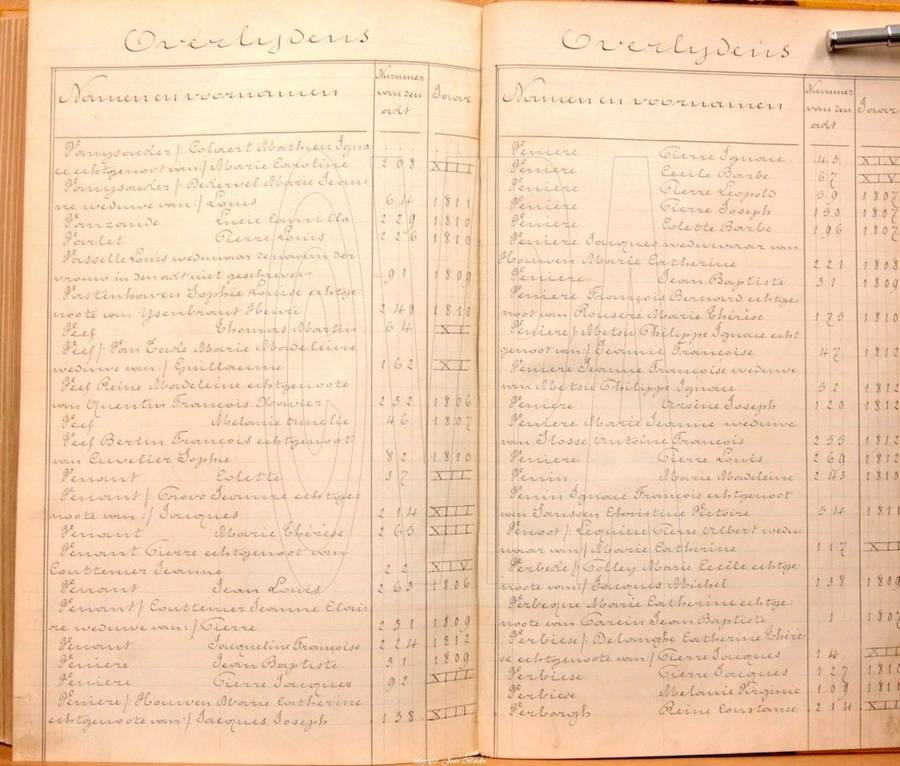 Overlijdens
Namen en voornamen
Nummer van den akt
Jaar
Colaert Mathieu Igna
ce echtgenoot van/ Marie Caroline 208 XIII
Dekervel Marie Jean
ne weduwe van/ Louis 64 1811
Lucie Camilla 229 1810
Pierre Louis 226 1810
Louis weduwaar de naam der
vrouw in den akt niet geschreven 91 1809
Sophie Louise echtge
noote van Ysenbrant Henri 249 1810
Peef Thomas Martin 64 XI
Peef/ Van Eecke Marie Madeleine
weduwe van/ Guillaume 162 XI
Peef Reine Madeleine echtgenoote
van Quentin François Xavier 232 1806
Peef Melanie Amelie 46 1807
Peef Bertin François echtgenoot
van Cuvelier Sophie 82 1810
Penant Colette 37 XII
Penant/ Jeanne echtge
noote van/ Jacques 214 XIII
Penant Marie Thérèse 265 XIII
Penant Pierre echtgenoot van
Couttenier Jeanne 22 XIV
Penant Jean Louis 263 1806
Penant/ Couttenier Jeanne Clair
re weduwe van/ Pierre 231 1809
Penant Jacqueline Françoise 224 1812
Peniere Jean Baptiste 31 1809
Peniere Pierre Jacques 92 XIII
Peniere/ Houwen Marie Catherine
echtgenoote van/ Jacques Joseph 138 XIII
Overlijdens
Namen en voornamen
Nummer van den akt
Jaar
Peniere Pierre Ignace 43 XIV
Peniere Cecile Barbe 67 XIV
Peniere Pierre Leopold 59 1807
Peniere Pierre Joseph 150 1807
Peniere Colette Barbe 196 1807
Peniere Jacques weduwaar van
Houwen Marie Catherine 221 1808
Peniere Jean Baptiste 31 1809
Peniere François Bernard echtge
noot van Rouseré Marie Thérèse 173 1810
Peniere/ Metsu Philippe Ignace echt
genoot van/ Jeanne Françoise 47 1812
Peniere Jeanne Françoise weduwe
van Metsu Philippe Ignace 52 1812
Peniere Arsène Joseph 120 1812
Peniere Marie Jeanne weduwe
van Antoine François 255 1812
Peniere Pierre Louis 269 1812
Penin Marie Madeleine 243 1810
Penin Ignace François echtgenoot
van Janssen Christine Victoire 54 1811
Penoot/ Lequieu Pierre Albert wedu
waar van/ Marie Catherine 117 XII
Perbeke/ Tolley Marie Cecile echtge
noote van/ Jacques Michel 138 1809
Perbeque Marie Catherine echtge
noote van Carein Jean Baptiste 1 1807
Perbiese/ Delanghe Catherine Thérè
se echtgenoote van/ Pierre Jacques 14 XII
Perbiese Pierre Jacques 127 1810
Perbiese Melanie Virginie 109 1811
Perborgh Reine Constance 214 XIII